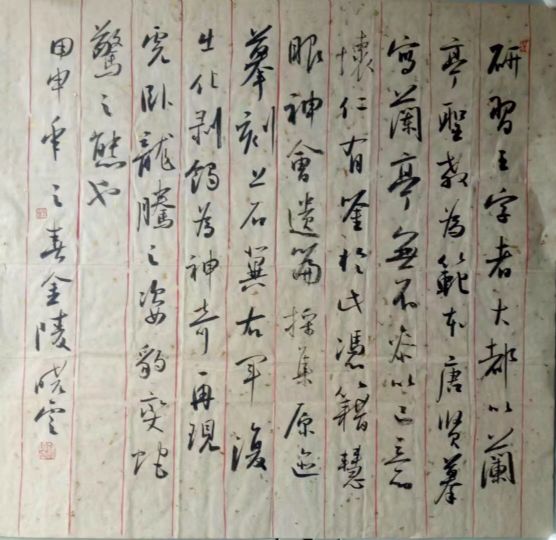 研習王字者大都以蘭
亭聖教為範本唐賢摹
寫蘭亭無不參以己意
懷仁有鉴於此憑籍慧
眼神會遺篇採集原迹
摹刻上石冀右軍復
生化剥蝕為神奇再現
虎卧龍騰之姿豹突蛇
驚之態也
甲申年之春金陵晓雲